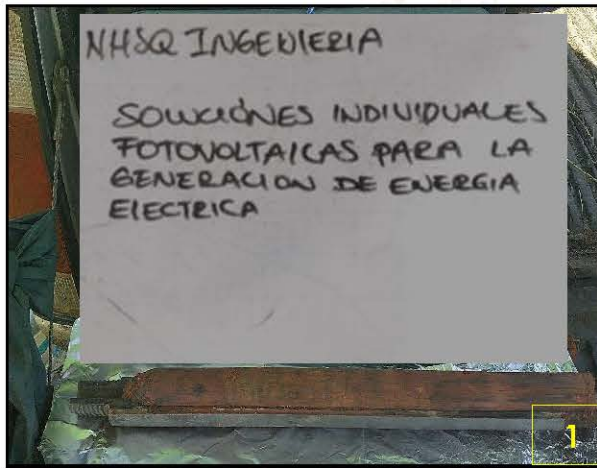 NHSQ INGENIERIA
SOLUCIÓNES INDIVIDUALES
FOTOVOLTAICAS PARA LA
GENERACION DE ENERGIA
ELECTRICA
1